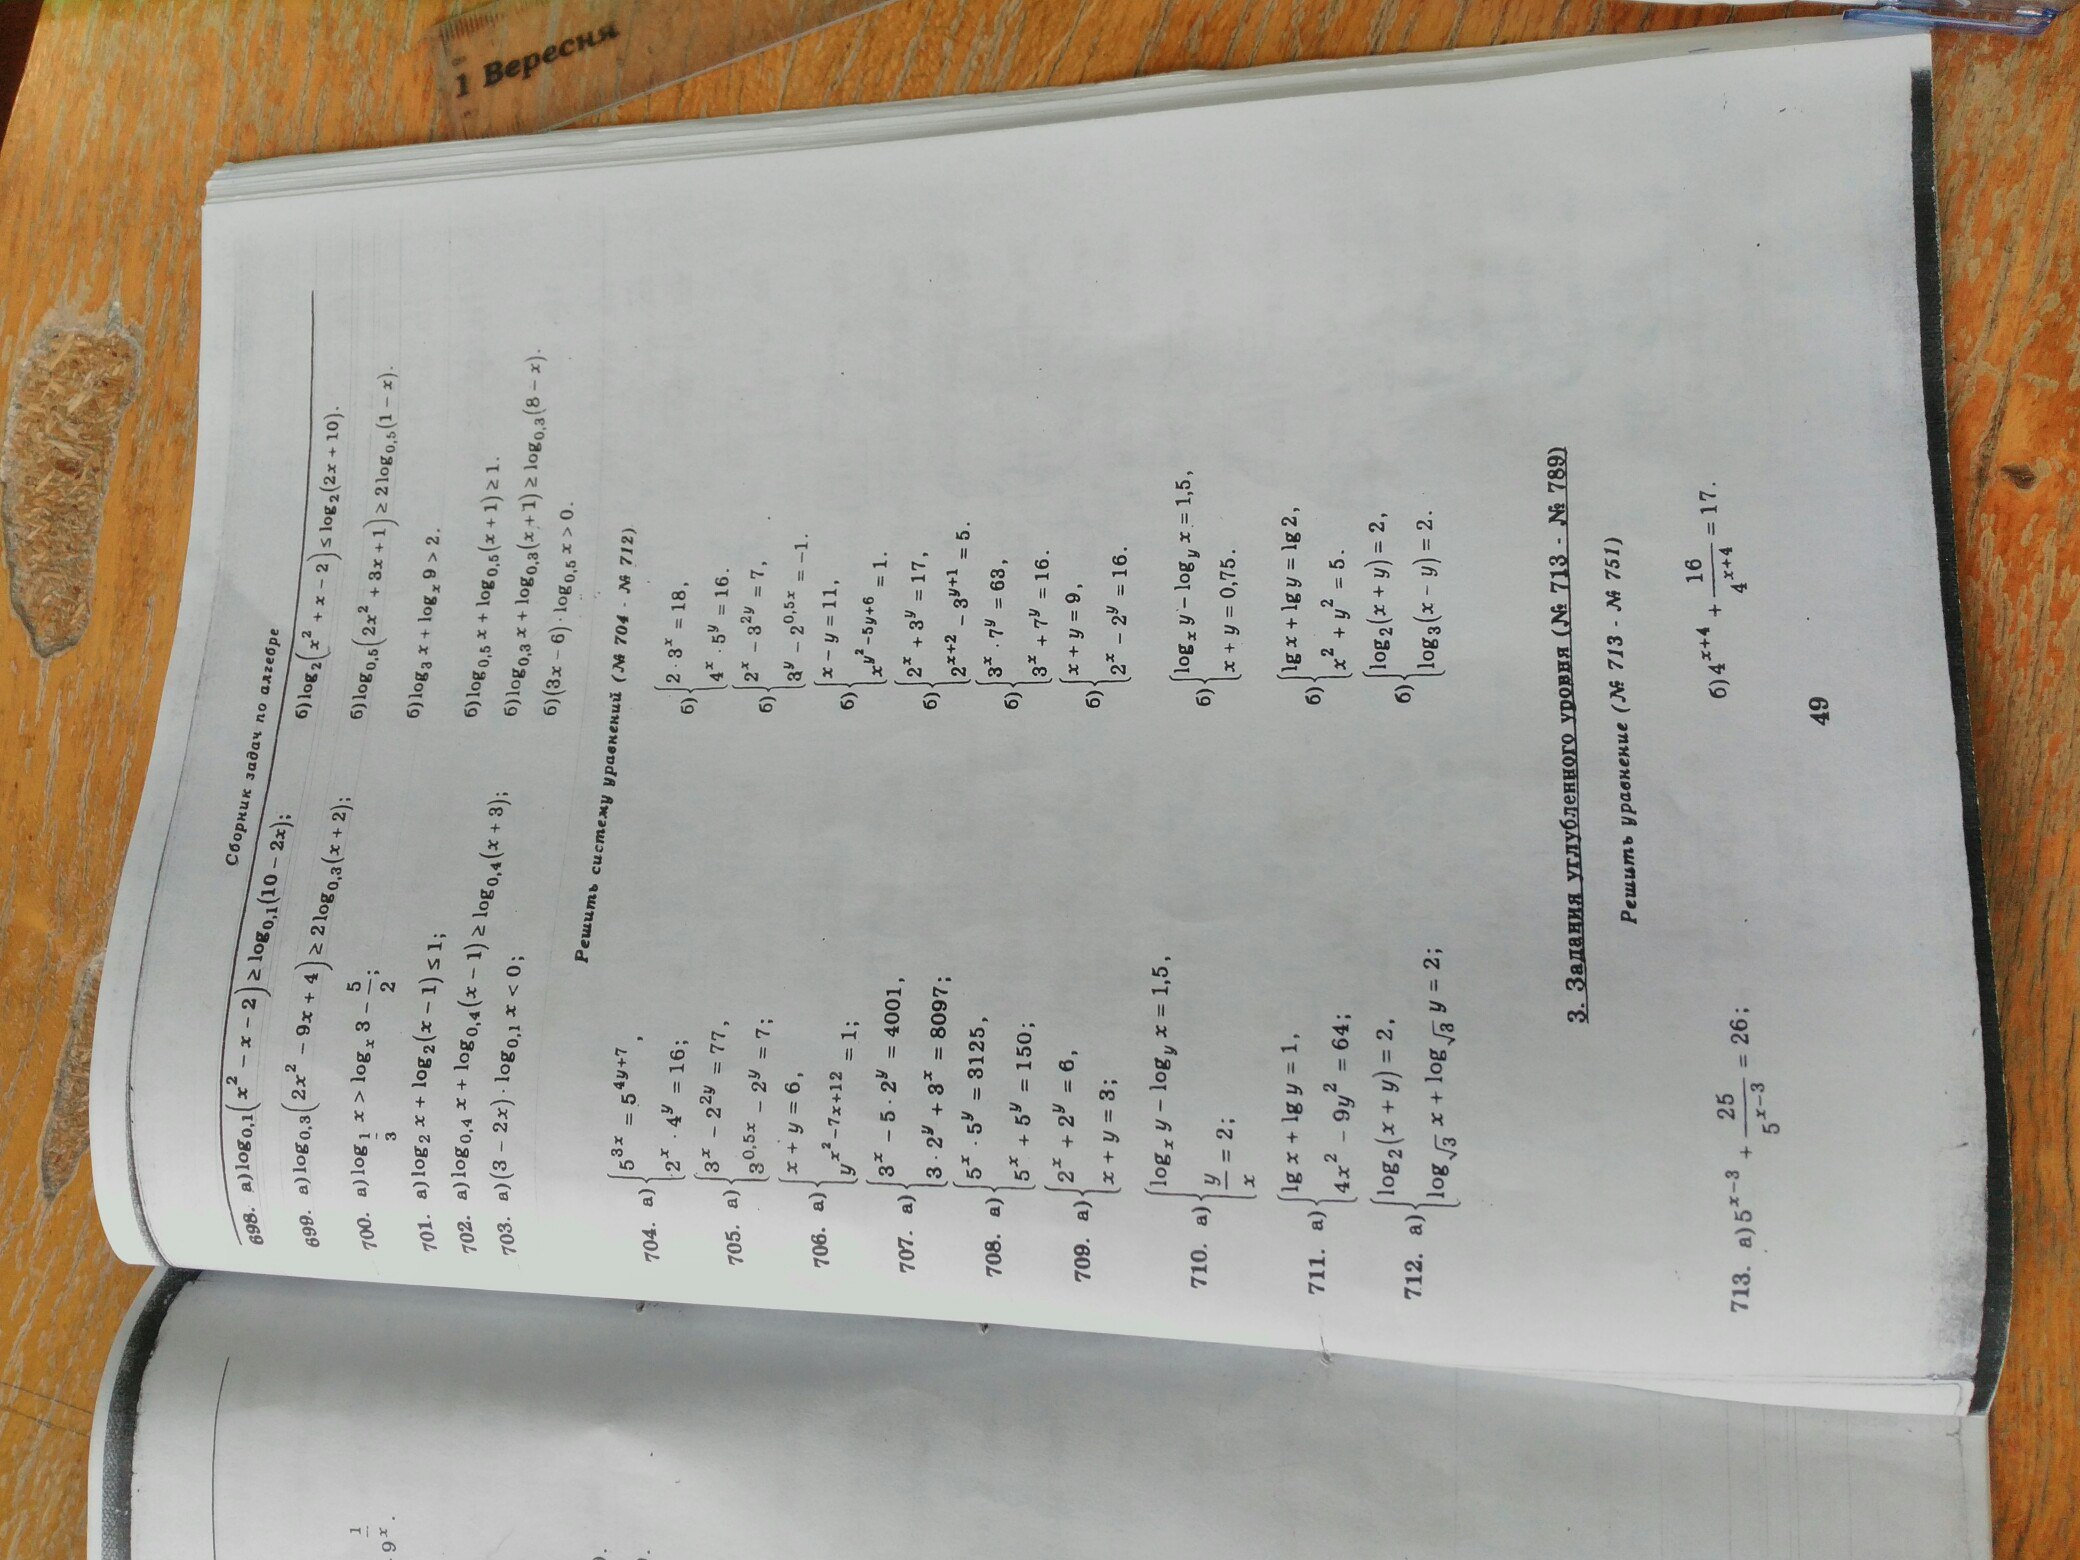 1 Вересня
Сборник задач по алгебре
698. а) log₀,₁(x² − x − 2) ≥ log₀,₁(10 − 2x); б) log₂(x² + x − 2) ≤ log₂(2x + 10).
699. а) log₀,₃(2x² − 9x + 4) ≥ 2log₀,₃(x + 2); б) log₀,₅(2x² + 3x + 1) ≥ 2log₀,₅(1 − x).
700. а) log_{1/3} x > log_x 3 − 5/2; б) log₃ x + log_x 9 > 2.
701. а) log₂ x + log₂(x − 1) ≤ 1; б) log₀,₅ x + log₀,₅(x + 1) ≥ 1.
702. а) log₀,₄ x + log₀,₄(x − 1) ≥ log₀,₄(x + 3); б) log₀,₃ x + log₀,₃(x + 1) ≥ log₀,₃(8 − x).
703. а) (3 − 2x) · log₀,₁ x < 0; б) (3x − 6) · log₀,₅ x > 0.
Решить систему уравнений (№ 704 - № 712)
704. а) { 5^{3x} = 5^{4y+7}, б) { 2 · 3^x = 18,
2^x · 4^y = 16; 4^x · 5^y = 16.
705. а) { 3^x − 2^{2y} = 77, б) { 2^x − 3^{2y} = 7,
3^{0,5x} − 2^y = 7; 3^y − 2^{0,5x} = −1.
706. а) { x + y = 6, б) { x − y = 11,
y^{x²−7x+12} = 1; x^{y²−5y+6} = 1.
707. а) { 3^x − 5 · 2^y = 4001, б) { 2^x + 3^y = 17,
3 · 2^y + 3^x = 8097; 2^{x+2} − 3^{y+1} = 5.
708. а) { 5^x · 5^y = 3125, б) { 3^x · 7^y = 63,
5^x + 5^y = 150; 3^x + 7^y = 16.
709. а) { 2^x + 2^y = 6, б) { x + y = 9,
x + y = 3; 2^x − 2^y = 16.
710. а) { log_x y − log_y x = 1,5, б) { log_x y − log_y x = 1,5,
y/x = 2; x + y = 0,75.
711. а) { lg x + lg y = 1, б) { lg x + lg y = lg 2,
4x² − 9y² = 64; x² + y² = 5.
712. а) { log₂(x + y) = 2, б) { log₂(x + y) = 2,
log_{√3} x + log_{√3} y = 2; log₃(x − y) = 2.
3. Задания углубленного уровня (№ 713 - № 789)
Решить уравнение (№ 713 - № 751)
713. а) 5^{x−3} + 25/5^{x−3} = 26; б) 4^{x+4} + 16/4^{x+4} = 17.
49